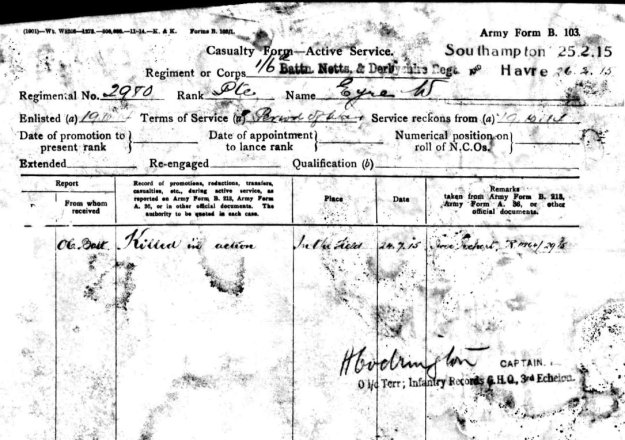 Forms B. 103/1.
Army Form B. 103.
Casualty Form—Active Service.
Southampton 25.2.15
Regiment or Corps 1/6th Battn. Notts. & Derbyshire Regt.
Havre 26.2.15
Regimental No. 2980 Rank Pte Name Eyre W
Enlisted (a) Terms of Service (a) Service reckons from (a)
Date of promotion to present rank
Date of appointment to lance rank
Numerical position on roll of N.C.Os.
Extended Re-engaged Qualification (b)
Report
From whom received
Record of promotions, reductions, transfers, casualties, etc., during active service, as reported on Army Form B. 213, Army Form A. 36, or in other official documents. The authority to be quoted in each case.
Place
Date
Remarks taken from Army Form B. 213, Army Form A. 36, or other official documents.
OC. Batt. Killed in action In the Field 24.7.15
H Codrington CAPTAIN.
O i/c Terr; Infantry Records G.H.Q., 3rd Echelon.